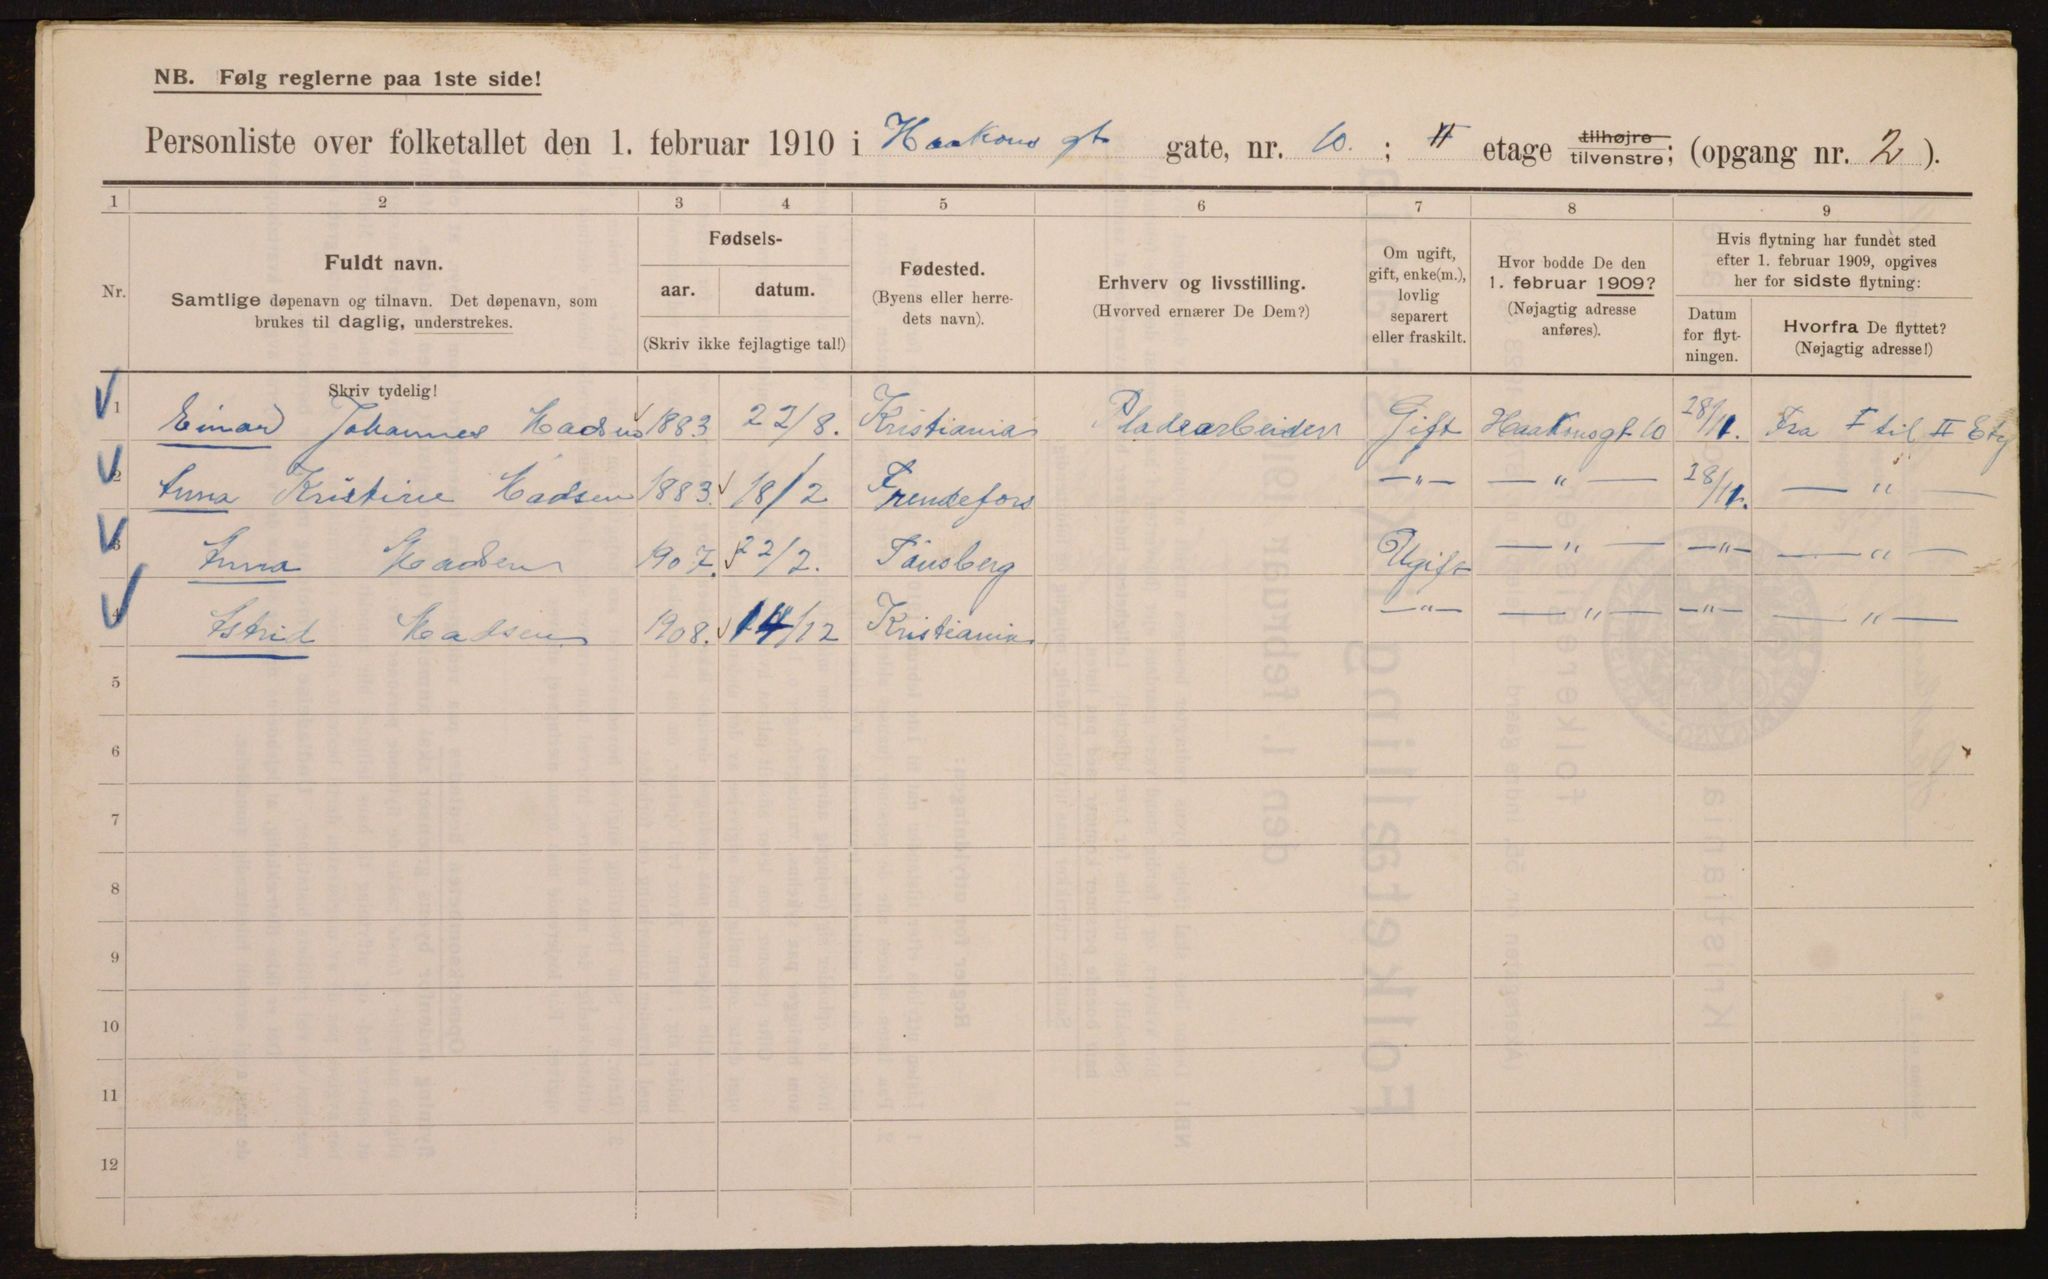 NB. Følg reglerne paa 1ste side!
Personliste over folketallet den 1. februar 1910 i Haakons gt gate, nr. 10. ; II etage tilhøjre tilvenstre; (opgang nr. 2 ).
1 2 3 4 5 6 7 8 9
Nr.
Fuldt navn.
Samtlige døpenavn og tilnavn. Det døpenavn, som
brukes til daglig, understrekes.
Fødsels-
aar. datum.
(Skriv ikke fejlagtige tal!)
Fødested.
(Byens eller herre-
dets navn).
Erhverv og livsstilling.
(Hvorved ernærer De Dem?)
Om ugift,
gift, enke(m.),
lovlig
separert
eller fraskilt.
Hvor bodde De den
1. februar 1909?
(Nøjagtig adresse
anføres).
Hvis flytning har fundet sted
efter 1. februar 1909, opgives
her for sidste flytning:
Datum
for flyt-
ningen.
Hvorfra De flyttet?
(Nøjagtig adresse!)
Skriv tydelig!
1 Einar Johannes Madsen 1883 22/8. Kristiania Pladearbeider Gift Haakonsgt 10 28/11. Fra I til II Etg
2 Anna Kristine Madsen 1883. 18/2 —"— — " — 28/11. — " —
3 Anna Madsen 1907. 22/2. Tønsberg Ugift — " — —"— — " —
4 Astrid Madsen 1908. 14/12 Kristiania —"— — " — —"— — " —
5
6
7
8
9
10
11
12